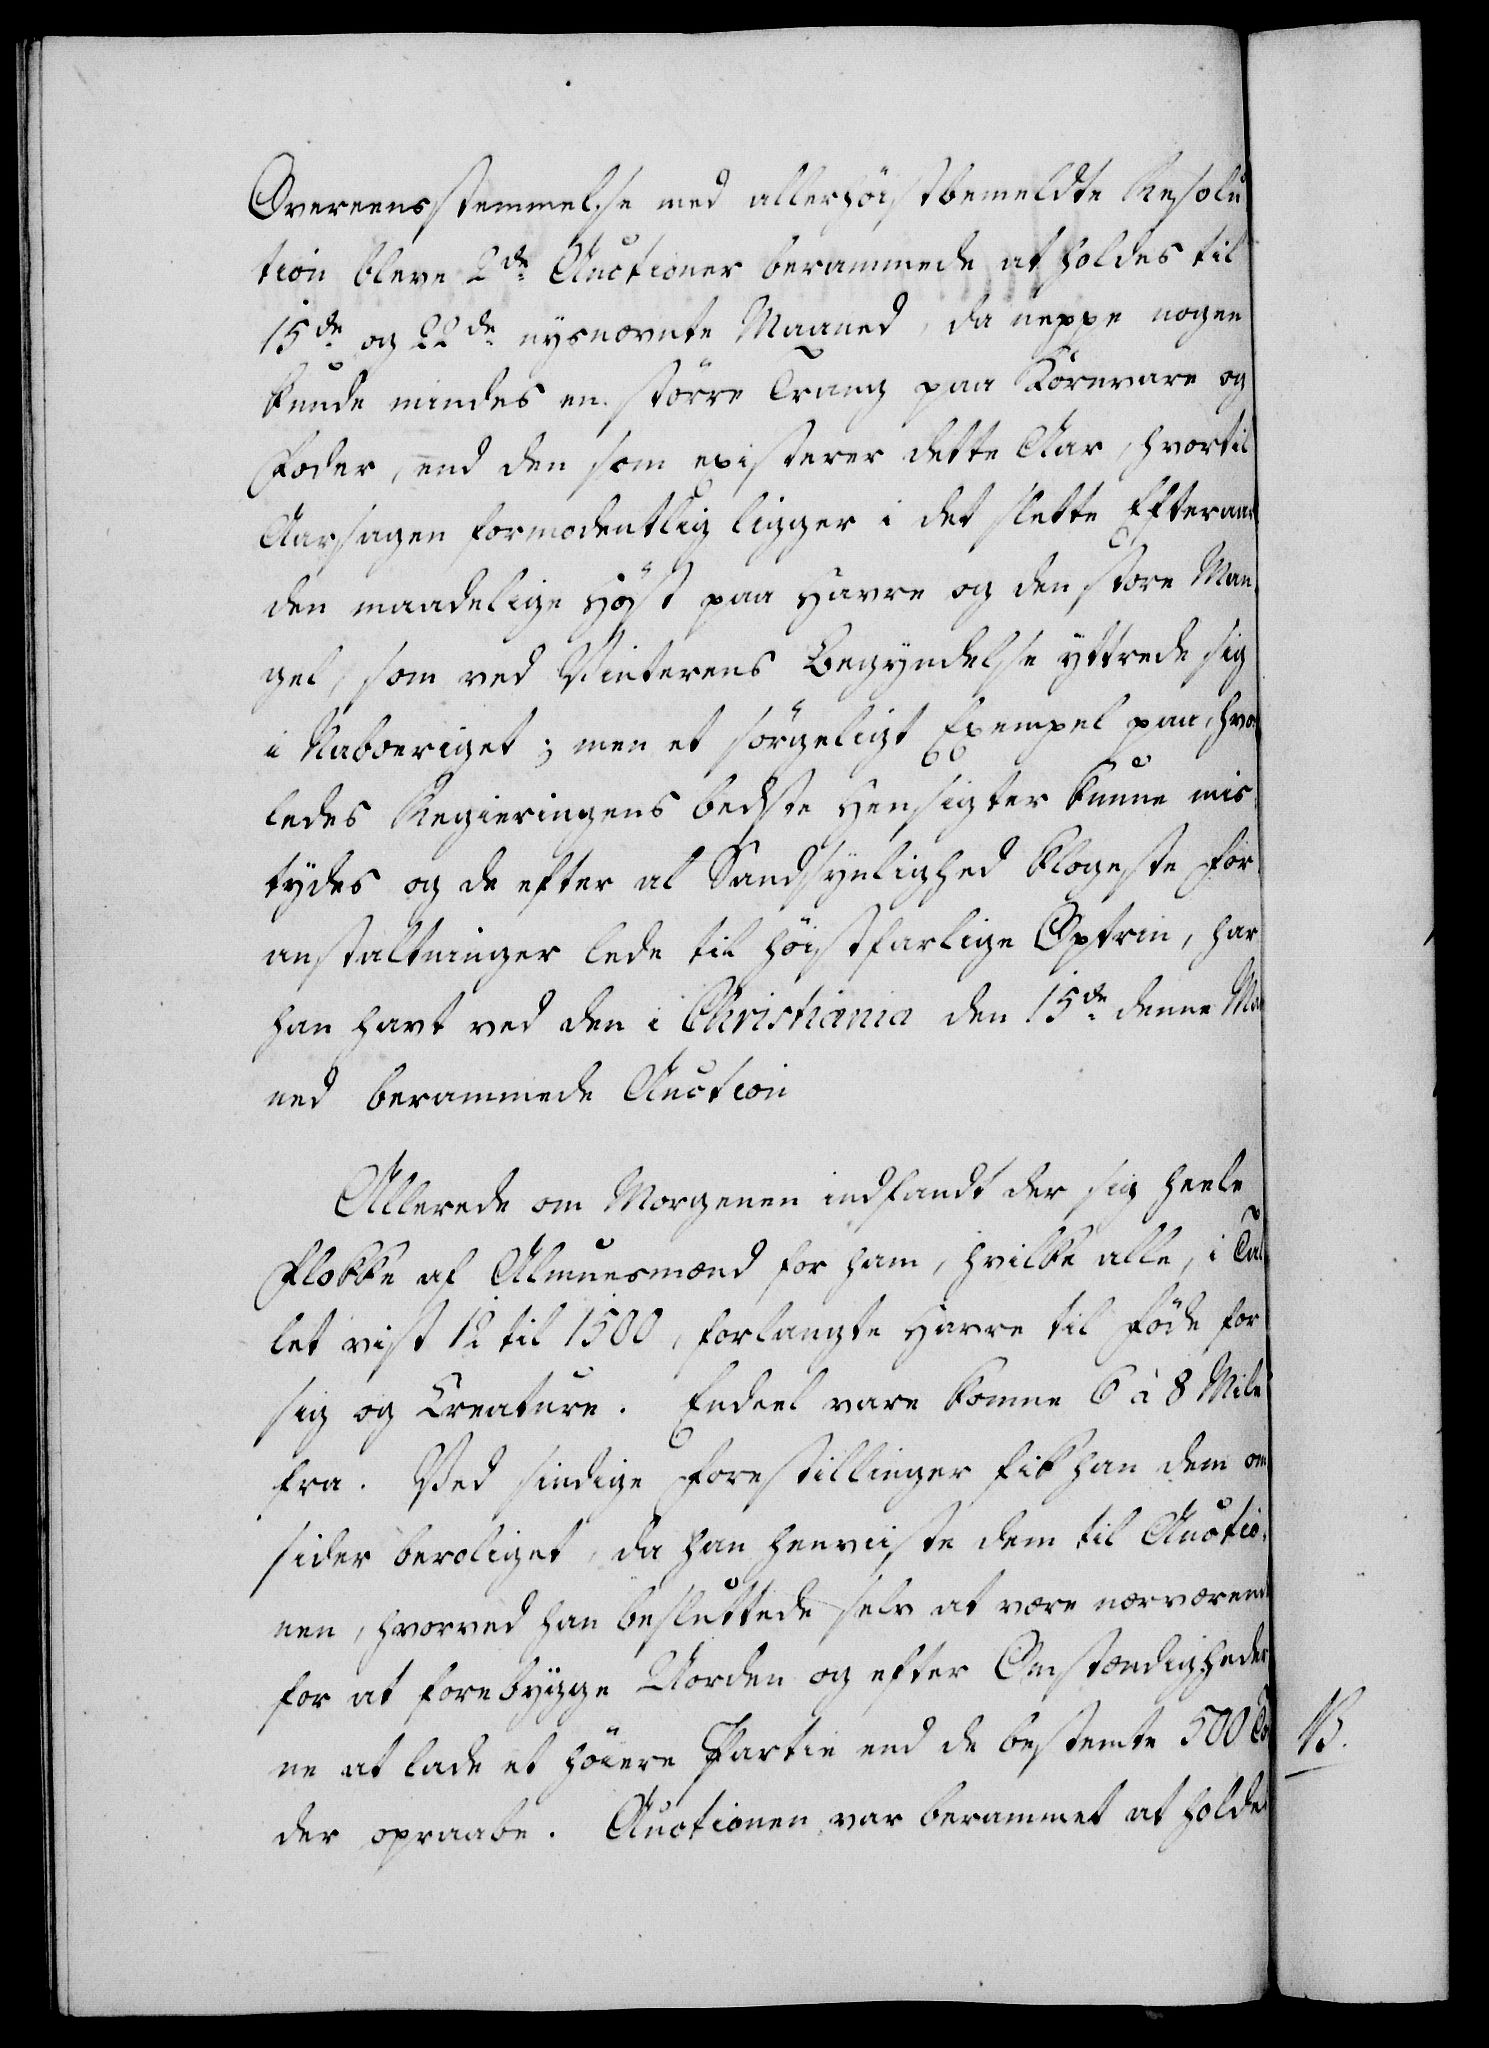 Overeensstemmelse med allerhöistbemeldte Resolu
tion bleve 2de Auctioner berammede at holdes til
15de og 22de nysnævnte Maaned, da neppe nogen
kunde mindes en större Trang paa Kornvare og
Foder, end den som existerer dette Aar, hvortil
Aarsagen formodentlig ligger i det slette Efteraar
den maadelige Höst paa Havre og den store Man-
gel, som ved Vinterens Begyndelse yttrede sig
i Naboeriget; men et sörgeligt Exempel paa, hvor
ledes Regieringens bedste Hensigter kunne mis
tydes og de efter al Sandsynlighed klogeste For
anstaltninger lede til höistfarlige Optrin, har
han havt ved den i Christiania den 15de denne Maa
ned berammede Auction
Allerede om Morgenen indfandt der sig heele
Flokke af Almuesmænd for ham, hvilke alle, i Tal
let vist 12 til 1500, forlangte Havre til Föde for
sig og Creature. Endeel vare komne 6 à 8 Mile
fra. Ved sindige Forestillinger fik han dem om
sider beroliget, da han henviiste dem til Auctio-
nen, hvorved han besluttede selv at være nærværende
for at forebygge Uorden og efter Omstændigheder
ne at lade et höiere Partie end de bestemte 500 Tö
der opraabe. Auctionen var berammet at holdes
B.